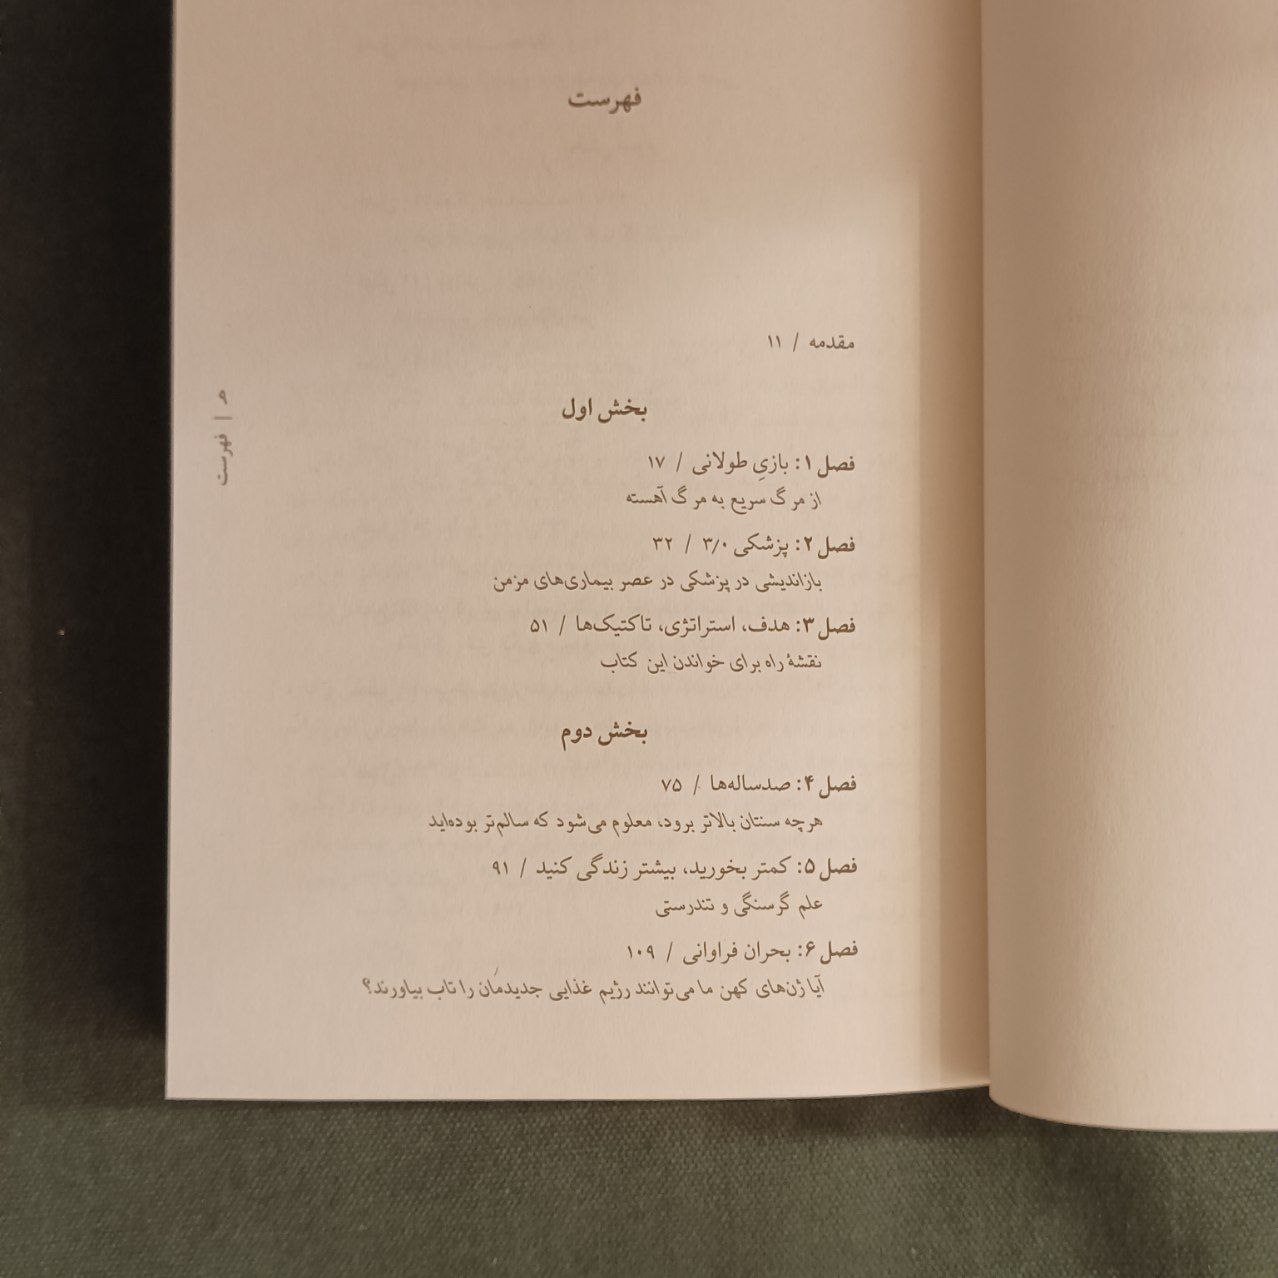 فهرست
مقدمه / ۱۱
بخش اول
فصل ۱: بازیِ طولانی / ۱۷
از مرگ سریع به مرگ آهسته
فصل ۲: پزشکی ۳٫۰ / ۳۲
بازاندیشی در پزشکی در عصر بیماری‌های مزمن
فصل ۳: هدف، استراتژی، تاکتیک‌ها / ۵۱
نقشهٔ راه برای خواندن این کتاب
بخش دوم
فصل ۴: صدساله‌ها / ۷۵
هرچه سنتان بالاتر برود، معلوم می‌شود که سالم‌تر بوده‌اید
فصل ۵: کمتر بخورید، بیشتر زندگی کنید / ۹۱
علم گرسنگی و تندرستی
فصل ۶: بحران فراوانی / ۱۰۹
آیا ژن‌های کهن ما می‌توانند رژیم غذایی جدیدمان را تاب بیاورند؟
فهرست